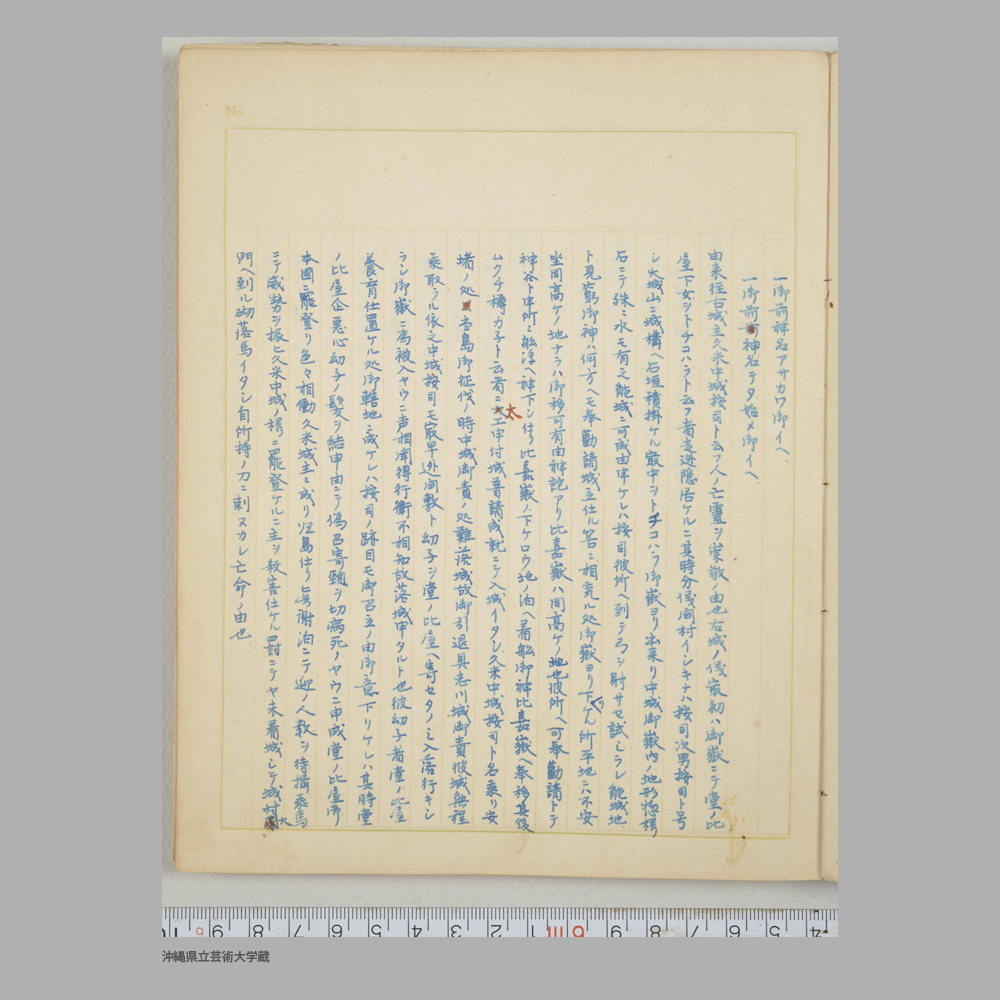 一御前神名アサカワ御イベ
一御前神名テダ始メ御イベ
由来往古城主久米中城按司ト云フ人ノ亡霊ヲ崇敬ノ由也右城ノ儀最初ハ御嶽ニテ堂ノ比
屋下女ヲトチコハラト云フ者走逃隠居ケルニ其時分儀間村イシキナハ按司次男按司ト号
シ大城山ニ城構ヘ石垣積掛ケル最中ヲトチコハラ御嶽ヨリ出来リ中城御嶽内ノ地形惣様
石ニテ殊ニ水モ有之能城ニ可成由申ケレハ按司彼所ヘ到テ弓ヲ射サセ試シラレ能城地
ト見究御神ハ何方ヘモ奉勧請城立仕ル筈ニ相究ル処御嶽ヨリ下ケん所平地ニハ不安
坐同高ケノ地ナラハ御移可有由神託アリ比嘉嶽ハ同高ケノ地也彼所ヘ可奉勧請トテ
神谷ト申所ニ舩浮ヘ神下シ仕リ比嘉嶽ノ下ケロウ地ノ泊ヘ着舩御神比嘉嶽ヘ奉移其後
ムクチ樽カ子ト云者ニ大工申付城普請成就ニテ入城イタシ久米中城按司ト名乗リ安
堵ノ処当島御征伐ノ時中城御責ノ処難落城故御引退具志川城御責彼城無程
乗取ラル依之中城按司モ最早逃間敷ト幼子ヲ堂ノ比屋ヘ寄セタノミ入落行キシ
ラシ御嶽ニ為被入ヤウニ声相聞得行衛不相知故落城申タルト也彼幼子者堂ノ比屋
養育仕置ケル処御轄地ニ成ケレハ按司ノ跡目モ御召立ノ由御意下リケレハ其時堂
ノ比屋企悪心幼子ノ髪ヲ結申由ニテ偽召寄頸ヲ切病死ノヤウニ申成堂ノ比屋御
本國ニ罷登リ色々相働久米城主ニ成リ帰島仕リ謝泊ニテ迎ノ人数ヲ待揃乗馬
ニテ威勢ヲ振ヒ久米中城ノ様ニ罷登ケルニ主ヲ殺害仕ケル罰ニテヤ未着城シテ城大
門ヘ到ル砌落馬イタシ自所持ノ刀ニ刺ヌカレ亡命ノ由也
No.
沖縄県立芸術大学蔵